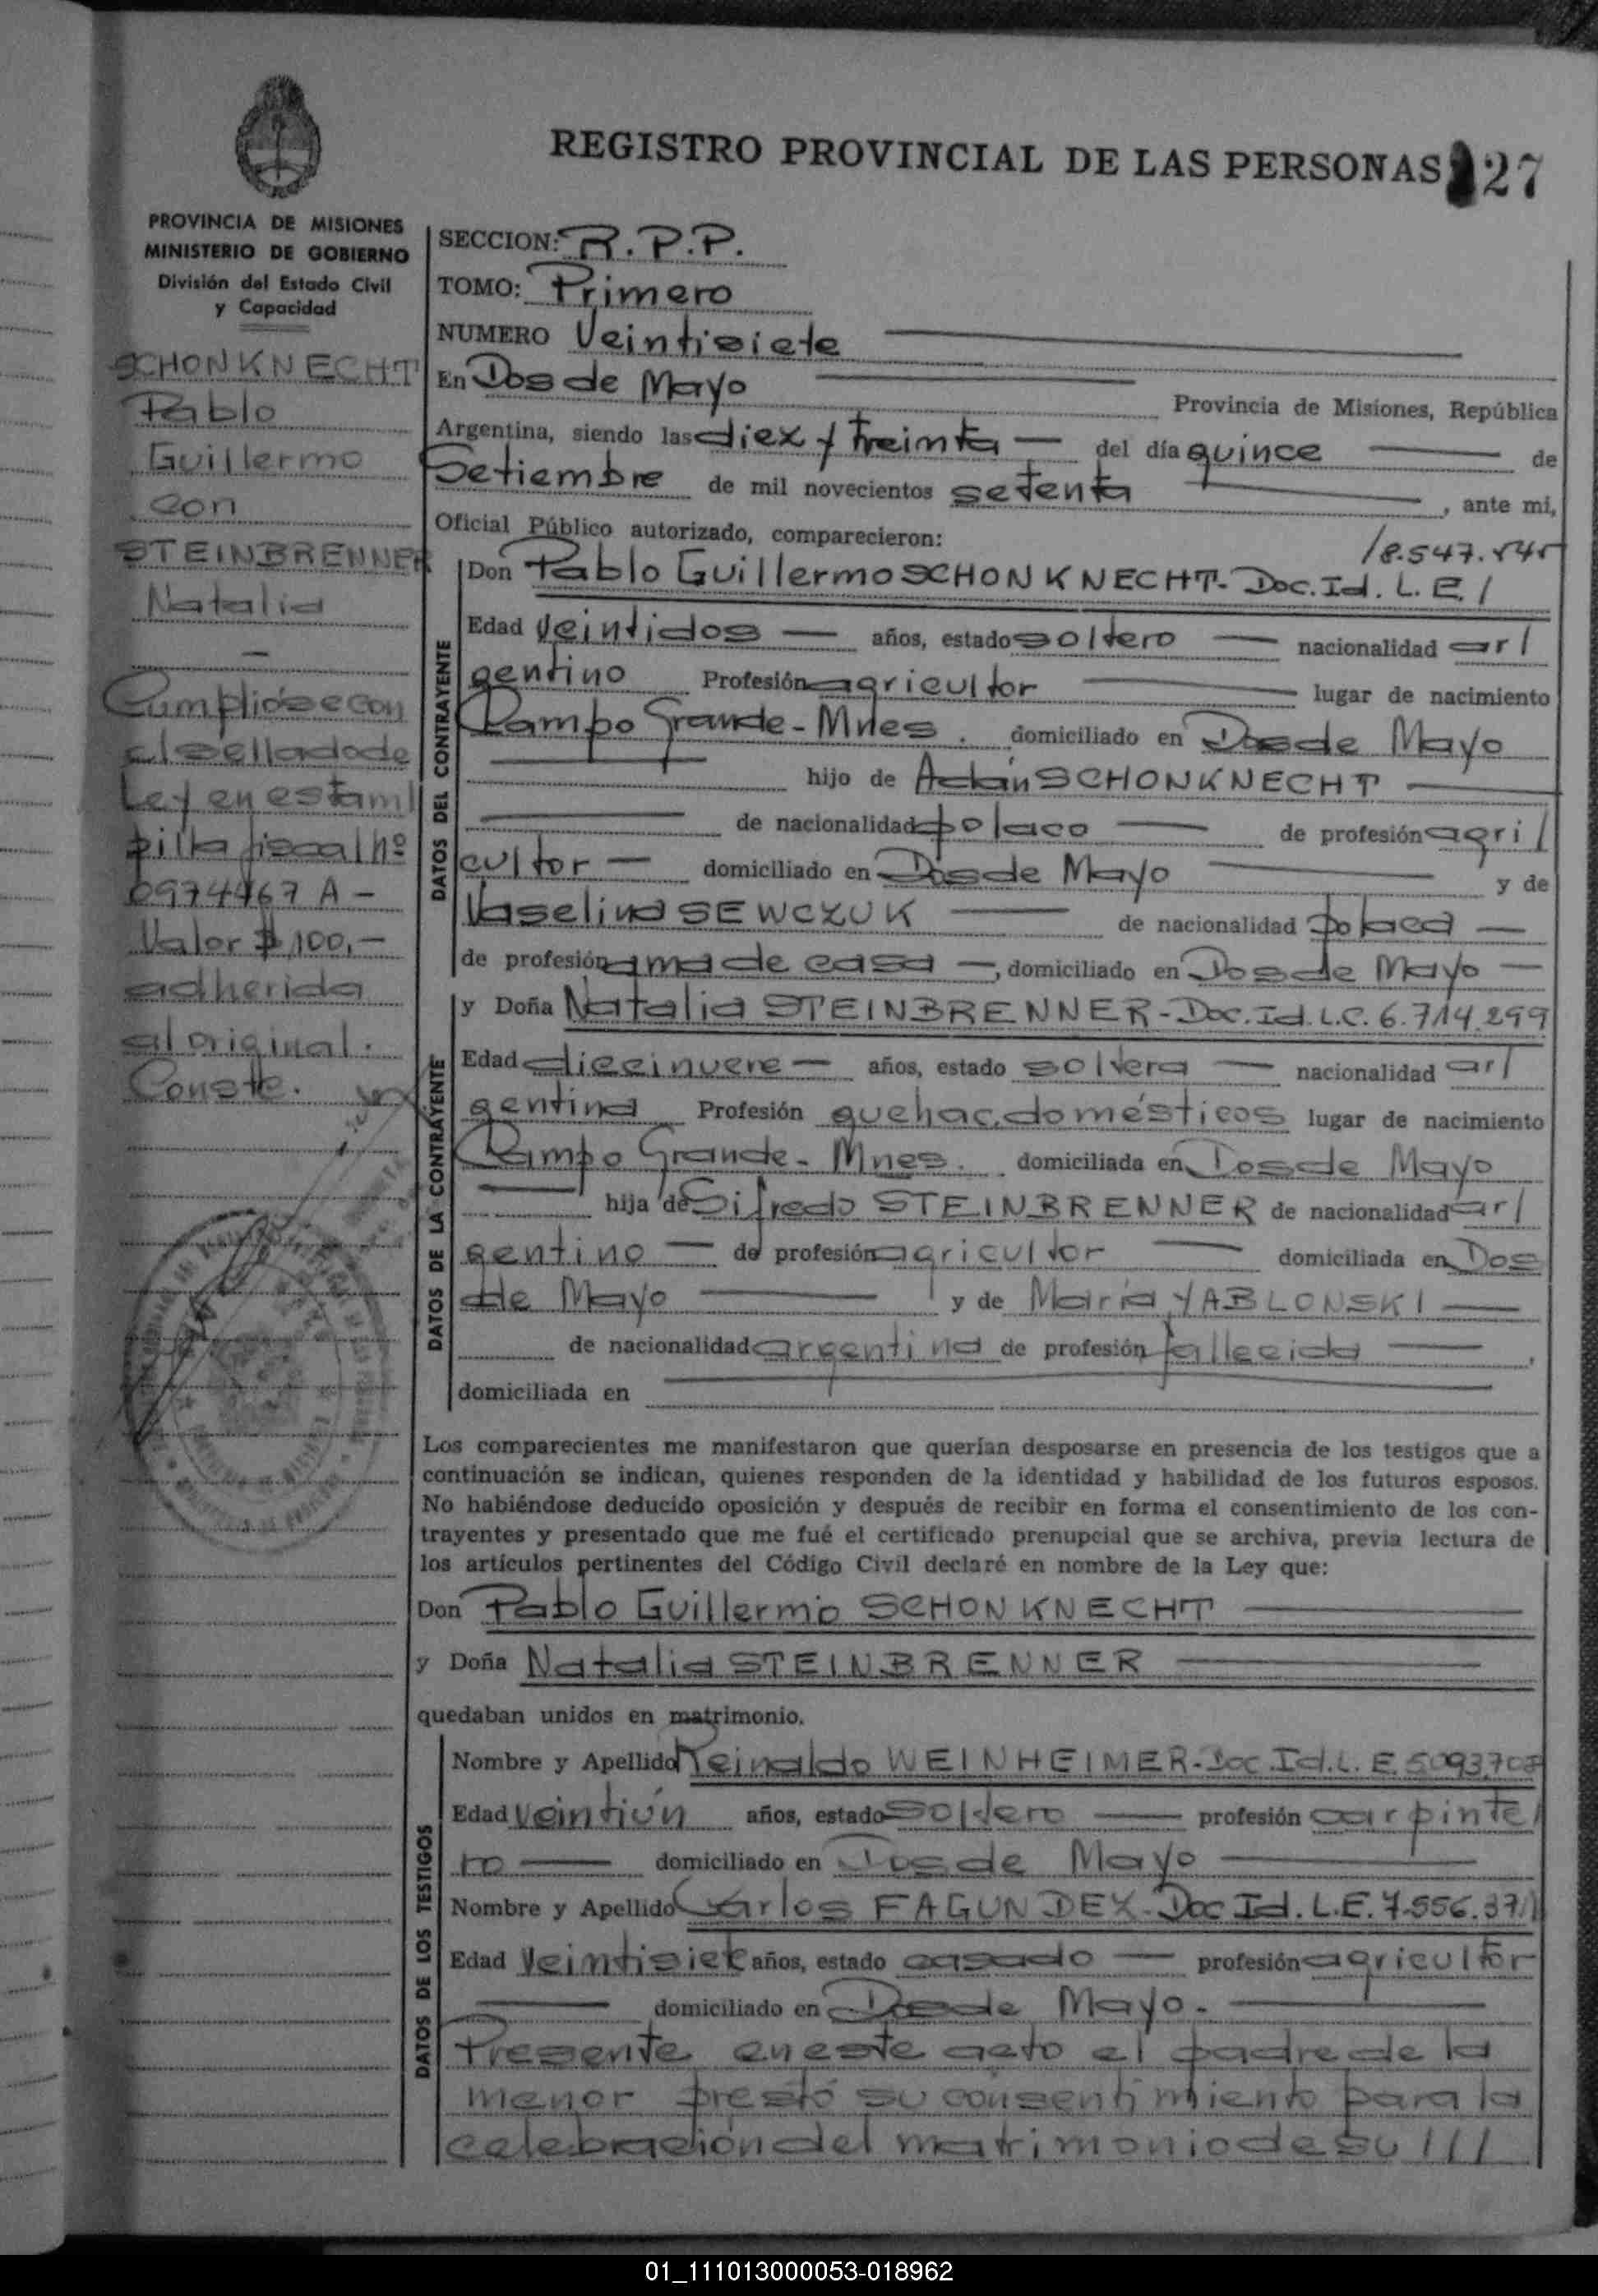 REGISTRO PROVINCIAL DE LAS PERSONAS 27
PROVINCIA DE MISIONES
MINISTERIO DE GOBIERNO
División del Estado Civil
y Capacidad
SCHONKNECHT
Pablo
Guillermo
con
STEINBRENNER
Natalia
—
Cumplióse con
el sellado de
Ley en estam/
pilla fiscal nº
0974467 A -
Valor $ 100,-
adherida
al original.
Conste.
SECCION: R.P.P.
TOMO: Primero
NUMERO Veintisiete
En Dos de Mayo Provincia de Misiones, República
Argentina, siendo las diez y treinta — del día quince de
Setiembre de mil novecientos setenta , ante mi,
Oficial Público autorizado, comparecieron:
/8.547.545
DATOS DEL CONTRAYENTE
Don Pablo Guillermo SCHONKNECHT- Doc. Id. L. E /
Edad Veintidos — años, estado soltero — nacionalidad ar/
gentino Profesión agricultor lugar de nacimiento
Campo Grande - Mnes. domiciliado en Dos de Mayo
hijo de Adán SCHONKNECHT
de nacionalidad polaco — de profesión agri/
cultor — domiciliado en Dos de Mayo y de
Vaselina SEWCZUK de nacionalidad polaca —
de profesión ama de casa —, domiciliado en Dos de Mayo —
DATOS DE LA CONTRAYENTE
y Doña Natalia STEINBRENNER - Doc. Id. L.C. 6.714.299
Edad diecinueve — años, estado soltera — nacionalidad ar/
gentina Profesión quehac. domésticos lugar de nacimiento
Campo Grande - Mnes. domiciliada en Dos de Mayo
hija de Sifredo STEINBRENNER de nacionalidad ar/
gentino — de profesión agricultor domiciliada en Dos
de Mayo y de María YABLONSKI
de nacionalidad argentina de profesión fallecida ,
domiciliada en
Los comparecientes me manifestaron que querían desposarse en presencia de los testigos que a
continuación se indican, quienes responden de la identidad y habilidad de los futuros esposos.
No habiéndose deducido oposición y después de recibir en forma el consentimiento de los con-
trayentes y presentado que me fué el certificado prenupcial que se archiva, previa lectura de
los artículos pertinentes del Código Civil declaré en nombre de la Ley que:
Don Pablo Guillermo SCHONKNECHT
y Doña Natalia STEINBRENNER
quedaban unidos en matrimonio.
DATOS DE LOS TESTIGOS
Nombre y Apellido Reinaldo WEINHEIMER - Doc. Id. L. E. 5.093.708
Edad Veintiún años, estado soltero — profesión carpinte/
ro — domiciliado en Dos de Mayo
Nombre y Apellido Carlos FAGUNDEZ - Doc Id. L.E. 7.556.371
Edad Veintisiete años, estado casado — profesión agricultor
domiciliado en Dos de Mayo.
Presente en este acto el padre de la
menor prestó su consentimiento para la
celebración del matrimonio de su ///
01_111013000053-018962